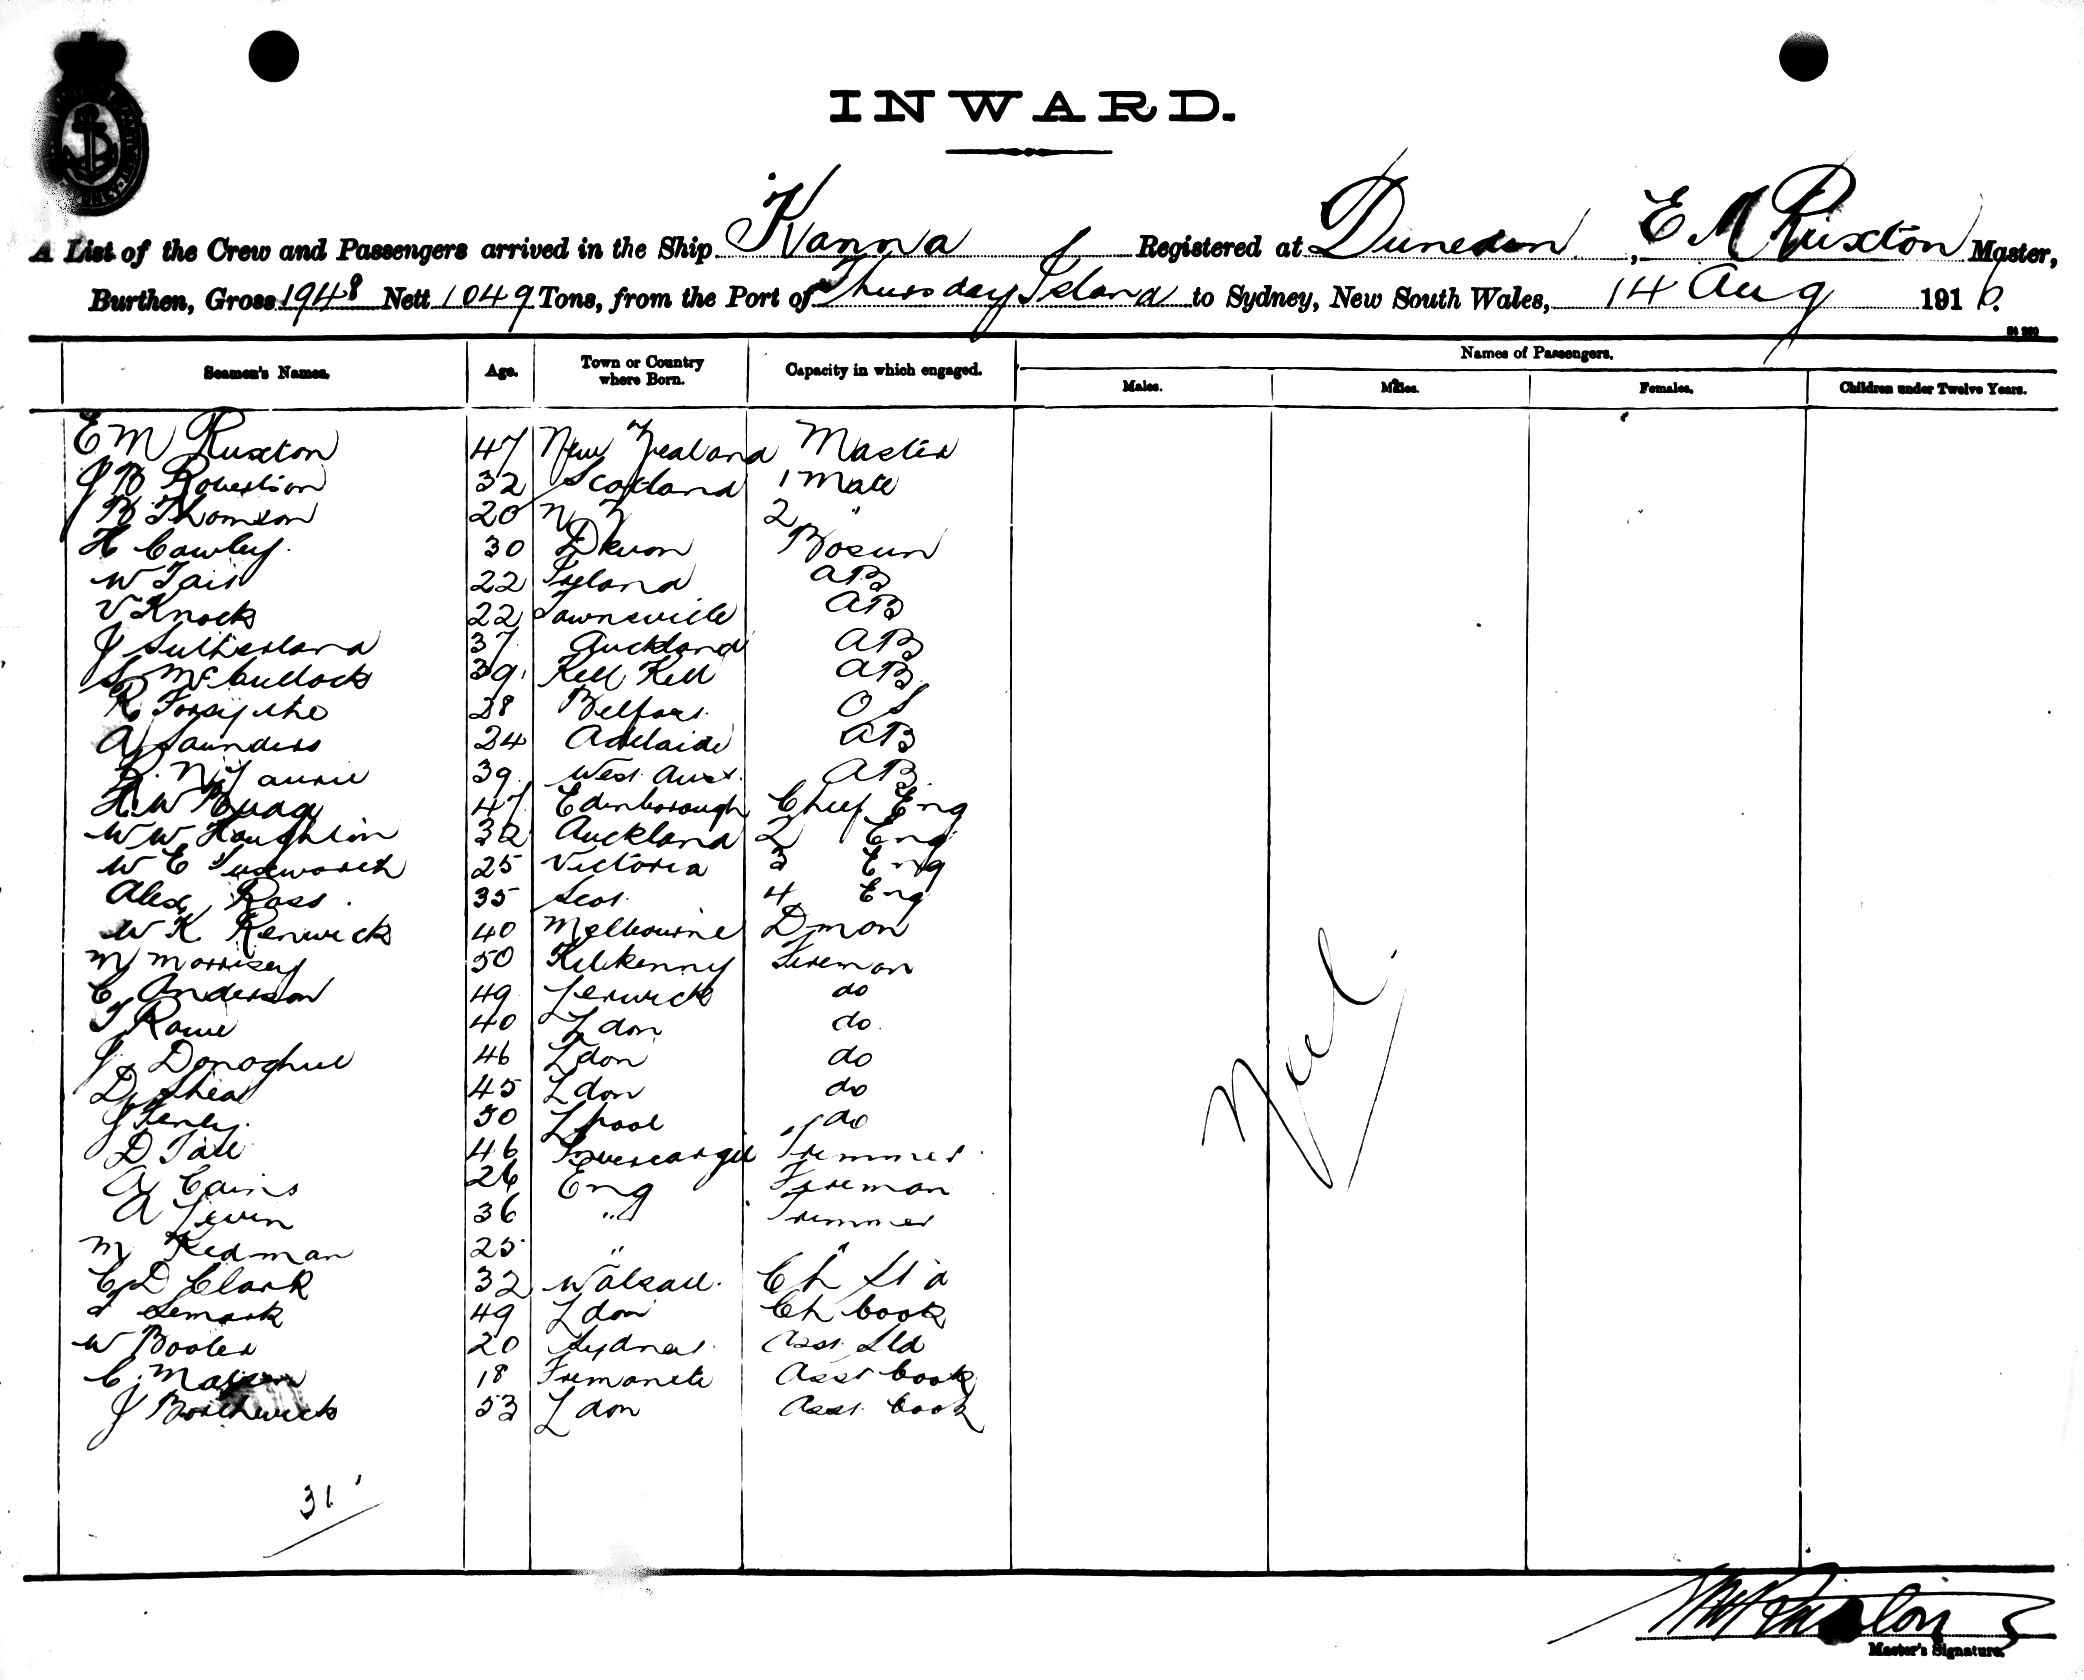 INWARD.
A List of the Crew and Passengers arrived in the Ship Kanna Registered at Dunedin, E M Ruxton Master,
Burthen, Gross 1948 Nett 1049 Tons, from the Port of Thursday Island to Sydney, New South Wales, 14 Aug 1916.
Names of Passengers.
Seamen's Names. Age. Town or Country where Born. Capacity in which engaged. Males. Males. Females. Children under Twelve Years.
E M Ruxton 47 New Zealand Master
J B Robertson 32 Scotland 1 Mate
R Thomson 20 N Z 2 "
H Cawley. 30 Devon Bosun
W Tait 22 Ireland AB
V Knock 22 Townsville AB
J Sutherland 37 Auckland AB
S McCullock 39 Kell Kell AB
R Forsythe 28 Belfast. O S
A Saunders 24 Adelaide AB
39 West Aust. AB
H W 47 Edinborough Chief Eng
W W Houghton 32 Auckland 2 Eng
W E 25 Victoria 3 Eng
Alex Ross. 35 Scot. 4 Eng
W K Renwick 40 Melbourne Dman
M Morrisey 50 Kilkenny Fireman
C Anderson 49 Lerwick do
T Rowe 40 Ldon do
J Donoghue 46 Ldon do
D Shea 45 Ldon do
J 50 Lpool do
D Tate 46 Invercargill Trimmer
A Cains 26 Eng Fireman
A Levin 36 " Trimmer
M Redman 25 " "
C D Clark 32 Walsall. Ch Std
Semark 49 Ldon Ch Cook
W Booler 20 Sydney. Asst. Std
C. 18 Fremantle Asst Cook
J Borthwick 53 Ldon Asst. Cook
Nil.
31
Master's Signature.